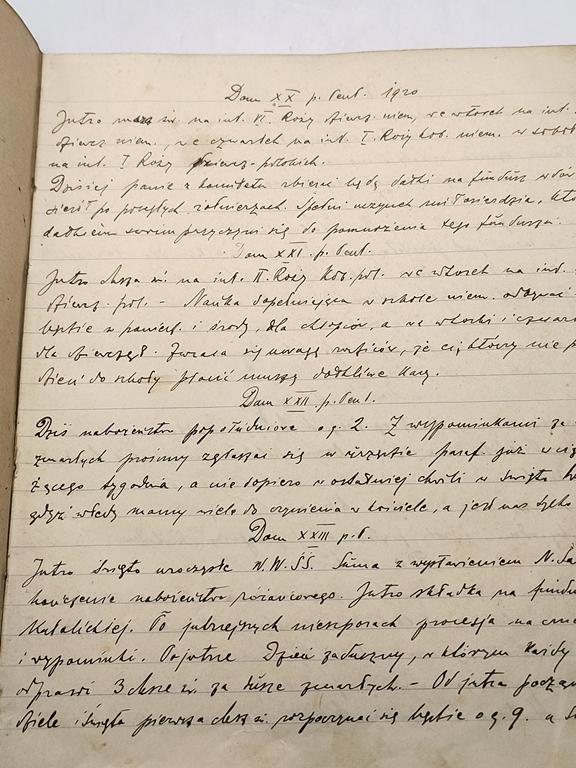 Dom XX p. Pent. 1920
Jutro msza św. na int. VI. Róży dziewcz. niem., we wtorek na int.
dziewcz. niem., we czwartek na int. I. Róży kob. niem. w sobot
na int. I Róży dziewcz. polskich.
Dzisiej panie z komitetu zbierać będą datki na fundusz wdów
sierót po poległych żołnierzach. Spełni uczynek miłosierdzia, kto
datkiem swoim przyczyni się do pomnożenia tego funduszu.
Dom XXI p. Pent.
Jutro Msza św. na int. II. Róży kob. pol. we wtorek na int.
dziewcz. pol. - Nauka dopełniająca w szkole niem. odbywać
będzie z poniedz. i środy, dla chłopców, a we wtorki i czwar
dla dziewcząt. Zwraca się uwagę rodziców, że ci, którzy nie p
dzieci do szkoły płacić muszą dotkliwe kary.
Dom XXII p. Pent.
Dziś nabożeństwo popołudniowe o g. 2. Z wypominkami za
zmarłych prosimy zgłaszać się w urzędzie paraf. już w cią
żącego tygodnia, a nie dopiero w ostatniej chwili w święto
gdyż wtedy mamy wiele do czynienia w kościele, a jest nas tylko
Dom XXIII p. P.
Jutro święto uroczyste W.W.ŚŚ. Suma z wystawieniem N. Sa
kończenie nabożeństwa różańcowego. Jutro składka na fundu
Katolickiej. Po jutrzejszych nieszporach procesja na cm
i wypominki. Pojutrze Dzień zaduszny, w którym każdy
odprawi 3 Msze św. za dusze zmarłych. - Od jutra począw
dziele i święta pierwsza Msza św. rozpoczynać się będzie o g. 9. a Su